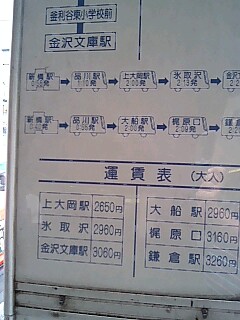 釜利谷東小学校前
金沢文庫駅
新橋駅 品川駅 上大岡駅 氷取沢
2:00発 2:13発
新橋駅 品川駅 大船駅 梶原口 鎌倉駅
2:09発
運賃表 (大人)
上大岡駅 2650円 大船駅 2960円
氷取沢 2960円 梶原口 3160円
金沢文庫駅 3060円 鎌倉駅 3260円